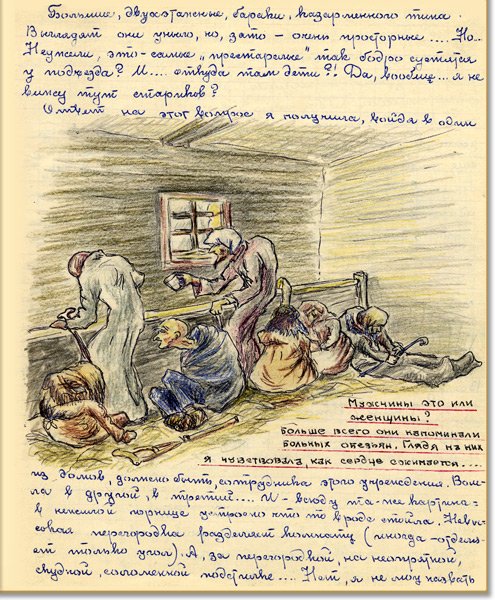 Большие, двухэтажные, бараки, казарменного типа.
Выглядят они уныло, но, зато – очень просторные .... Но...
Неужели, это – самые „престарелые" так бодро суетятся
у подъезда? И.... откуда там дети?! Да, вообще... я не
вижу тут стариков?
Ответ на этот вопрос я получила, войдя в один
Мужчины это или
женщины?
Больше всего они напоминали
больных обезьян. Глядя на них
я чувствовала, как сердце сжимается....
из домов, должно быть, сотрудника этого учреждения. Вош-
ла в другой, в третий.... И – всюду та-же картина –
в нежилой горнице устроено что то вроде стойла. Невы-
совая перегородка разделяет комнату (иногда – отделя-
ет только угол). А, за перегородкой, на неопрятной,
скудной, соломенной подстилке.... Нет, я не могу назвать